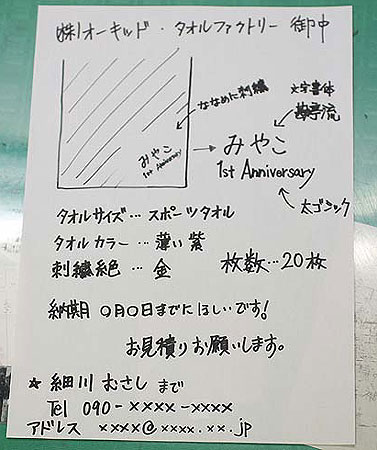 (株)オーキッド・タオルファクトリー 御中
ななめに刺繍
みやこ
1st Anniversary
☆字書体
勘亭流
みやこ
1st Anniversary
太ゴシック
タオルサイズ…スポーツタオル
タオルカラー…薄い紫
刺繍色…金 枚数…20枚
納期 〇月〇日までにほしいです!
お見積りお願いします。
☆ 細川むさし まで
Tel 090-××××-××××
アドレス ××××@××××.××.jp